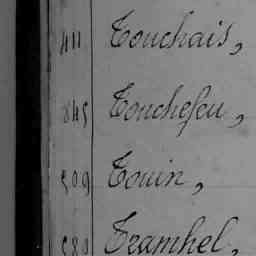 411 Touchais,
845 Touchefeu,
509 Touin,
580 Tramhel,